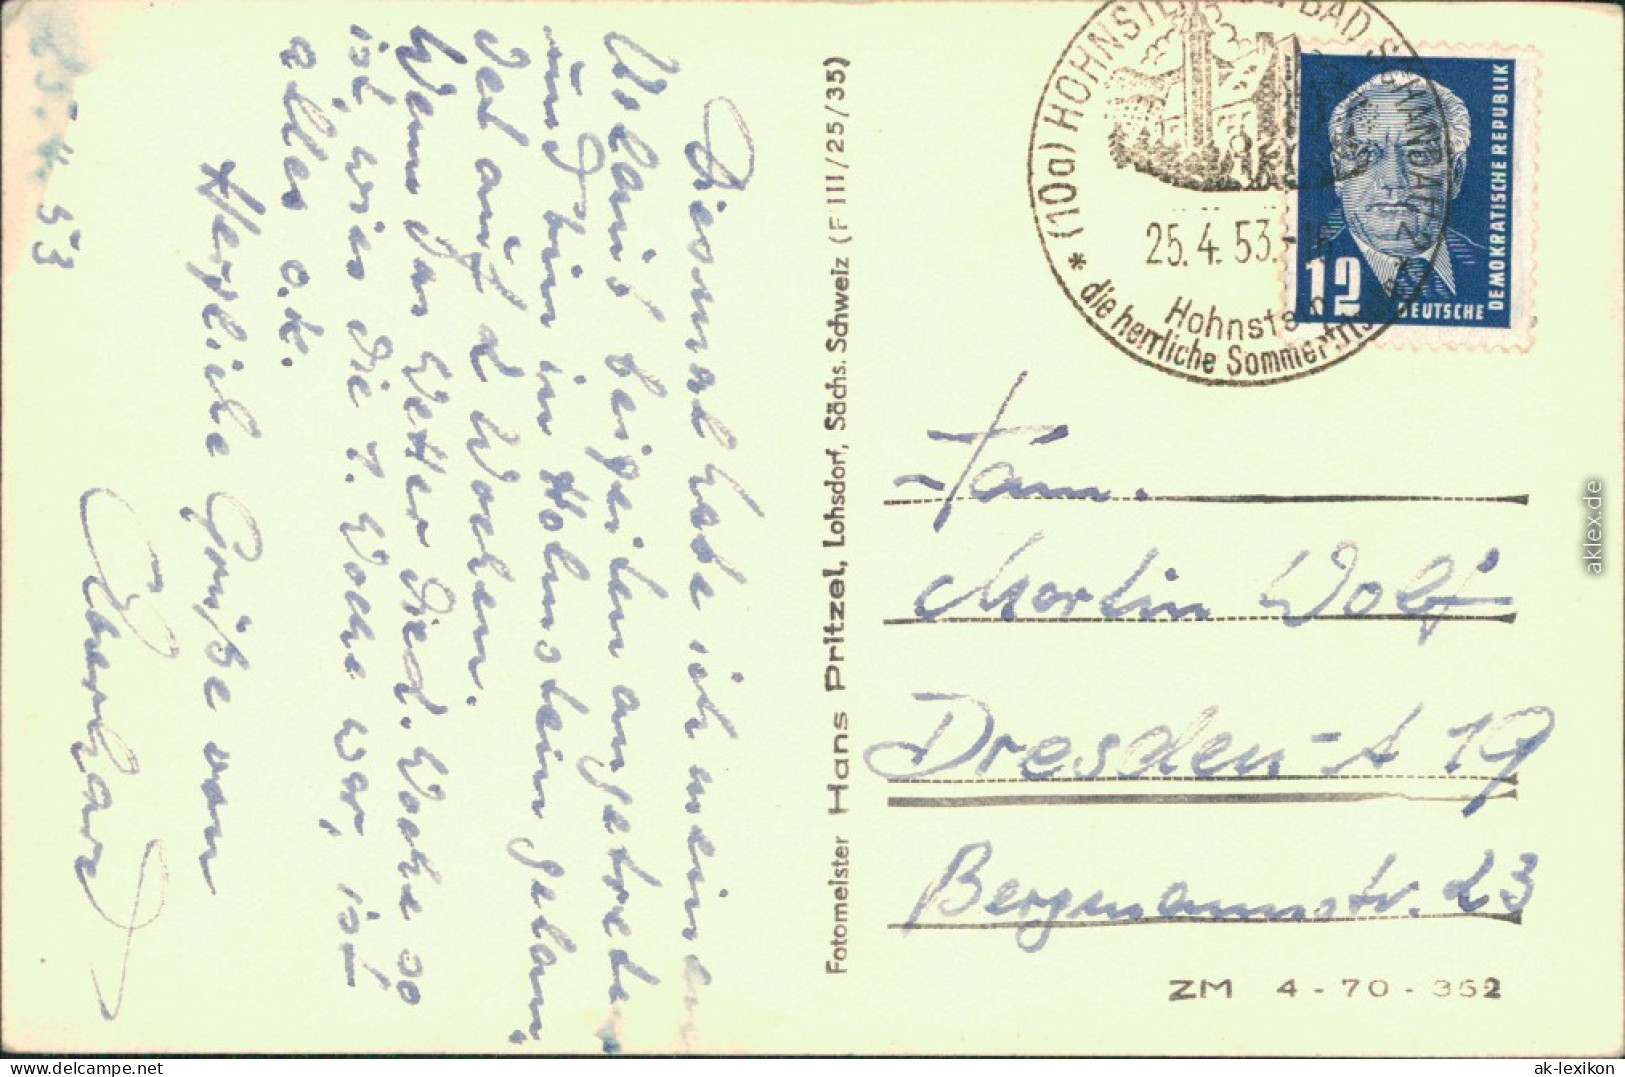 25.4.53
Diesmal habe ich meinen
Urlaub beizeiten angetreten
und bin in Hohnstein gelan-
det auf 2 Wochen.
Wenn das Wetter die 2. Woche so
ist, wie's die 1. Woche war, ist
alles o.k.
Herzliche Grüße von
Eberhard
Fotomeister Hans Pritzel, Lohsdorf, Sächs. Schweiz (F III/25/35)
(10a) HOHNSTEIN BAD SCHANDAU
25.4.53.-
Hohnstein
die herrliche Sommerfris
12
DEUTSCHE DEMOKRATISCHE REPUBLIK
Fam.
Martin Wolf
Dresden-A 19
Bergmannstr. 23
ZM 4-70-352
aklex.de
© ak-lexikon